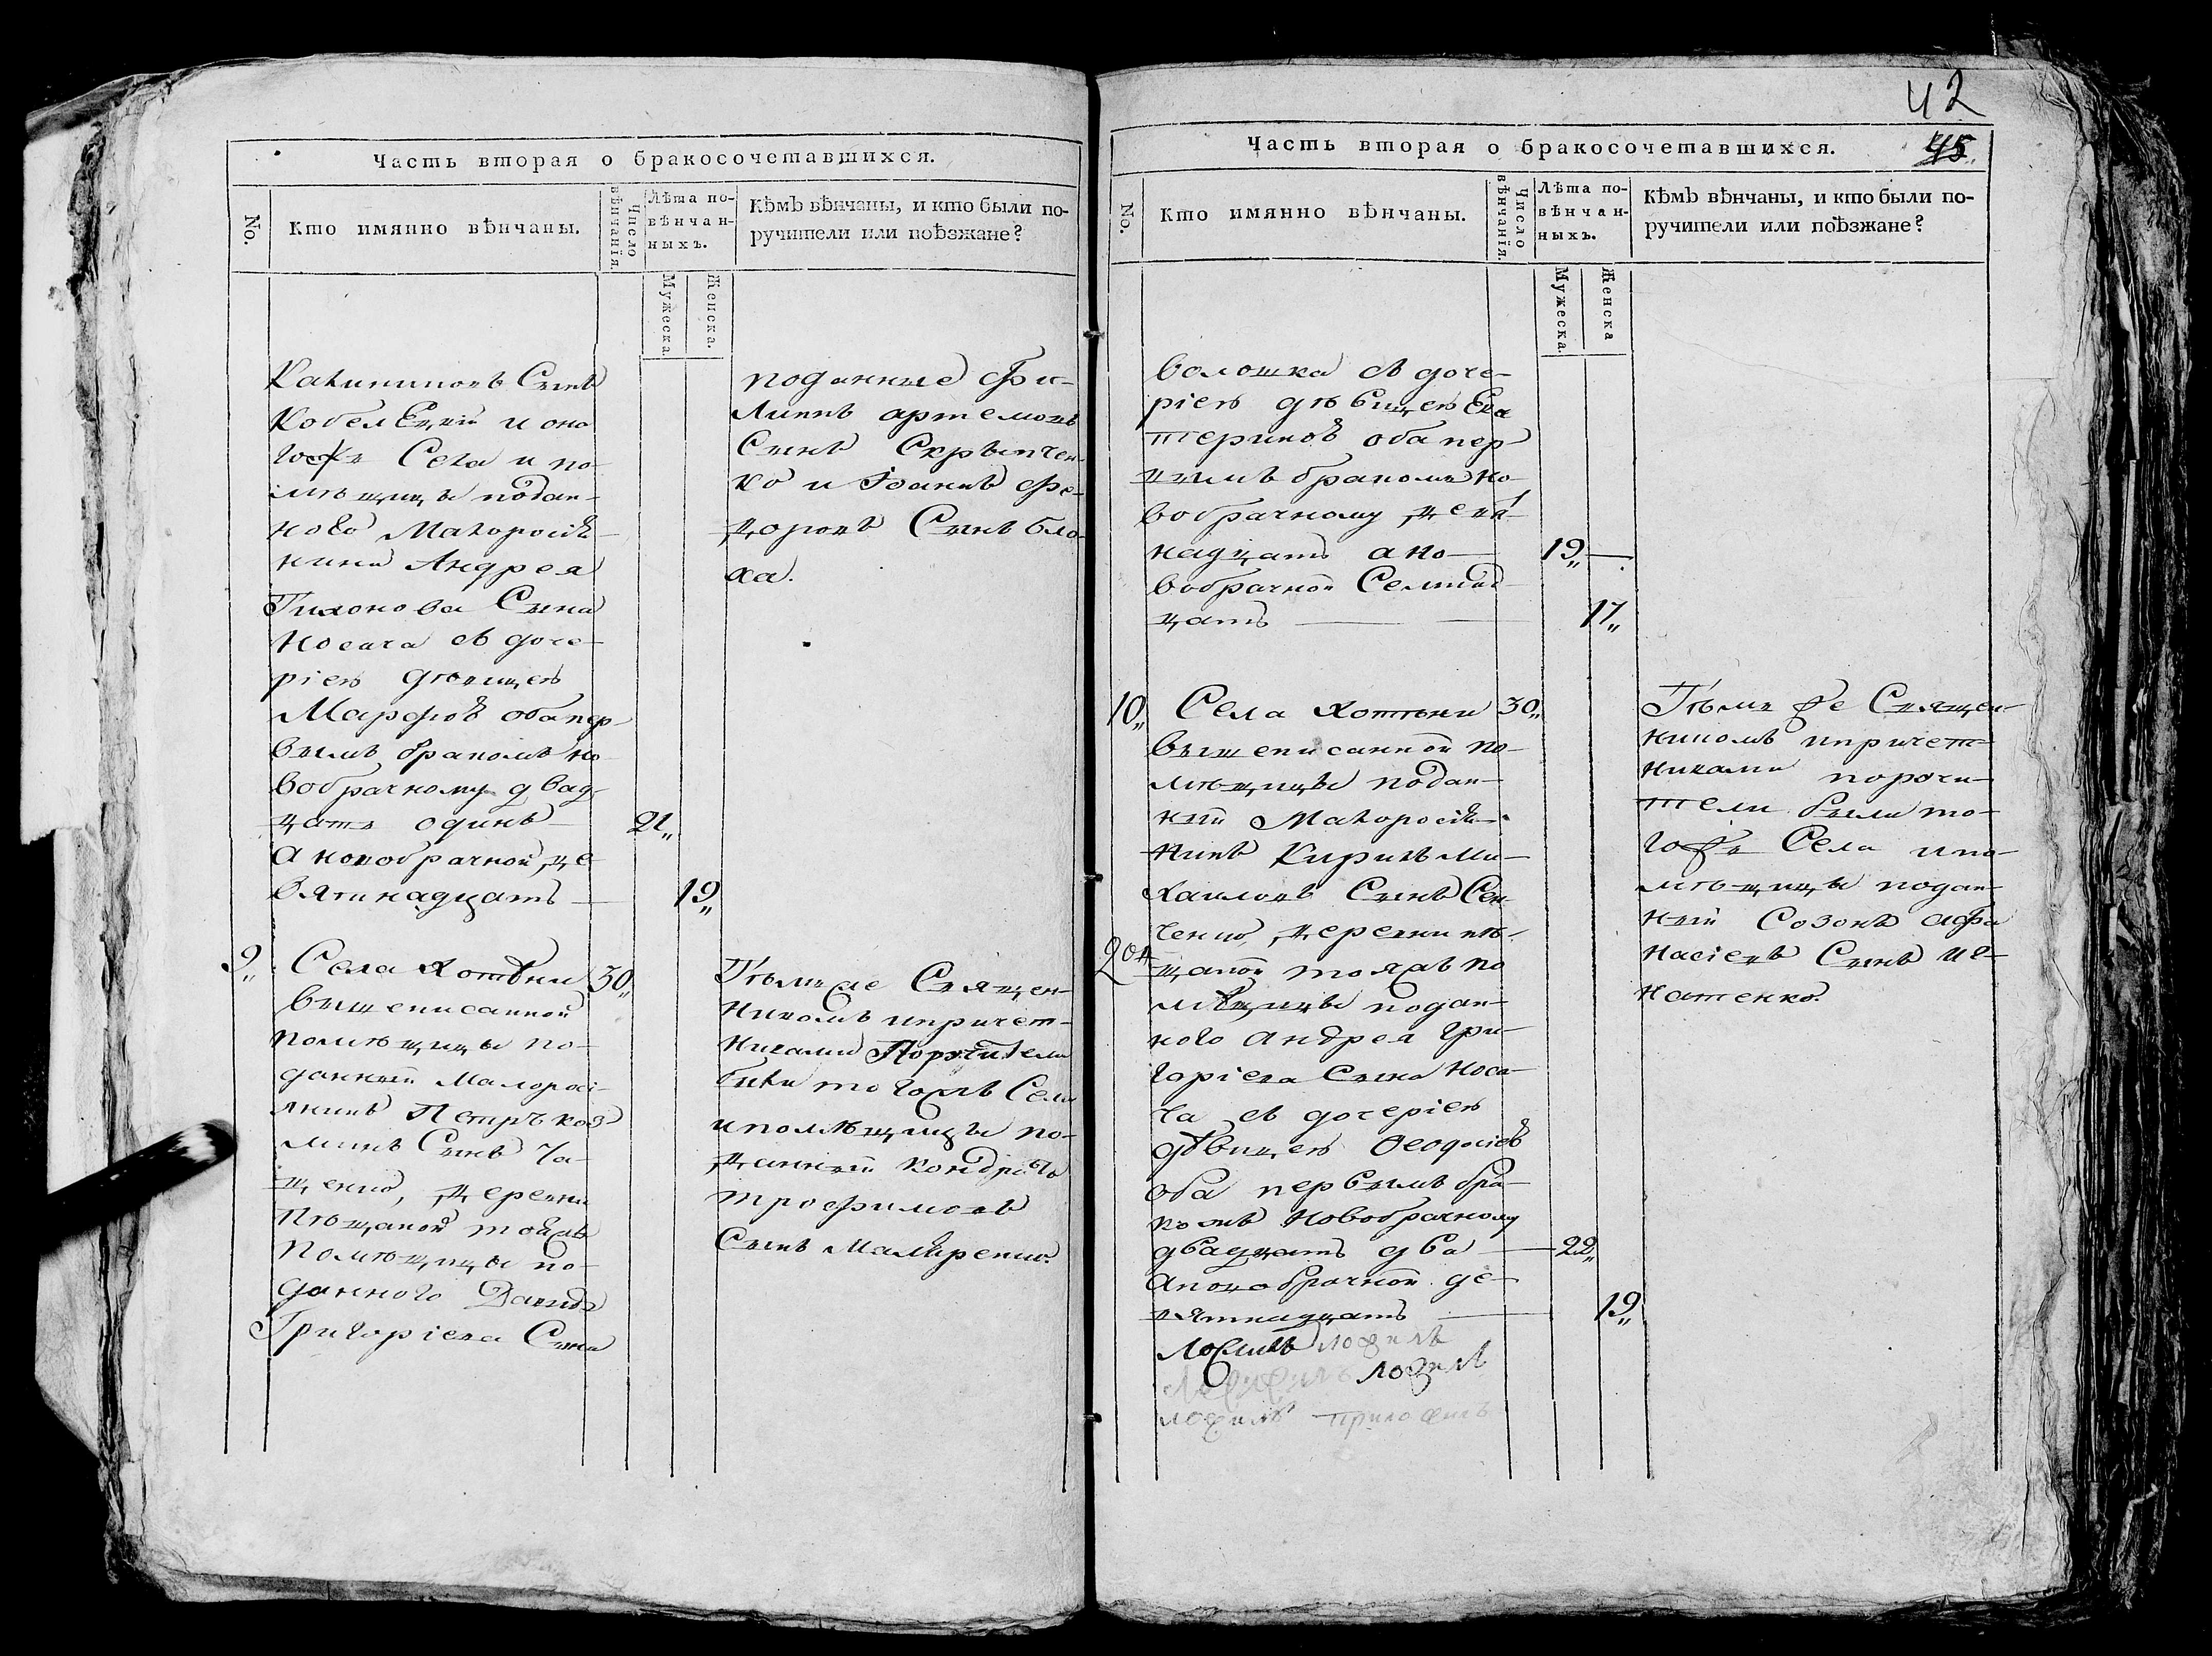 Часть вторая о бракосочетавшихся.
No.
Кто имянно вѣнчаны.
Число вѣнчанія.
Лѣта по-
вѣнчан-
ныхъ.
Мужеска.
Женска.
Кѣмъ вѣнчаны, и кто были по-
ручители или поѣзжане?
Сынъ
и оно
гожъ Села и по-
мѣщицы подан-
ного Малоросія-
нина Андрея
Тихонова Сына
Носача съ доче-
ріею девицею
Марфою оба пер-
вымъ бракомъ но-
вобрачному двад-
цать одинъ 21„
а новобрачной де-
вятнадцать 19„
поданные Фи-
липпъ артемовъ
Сынъ Скрыпчен-
ко и Іоаннъ Фе-
доровъ Сынъ бло-
ха.
9„ Села Хотѣни 30„
вышеписанной
помѣщицы по-
данный Малоросі-
янинъ Петръ коз-
минъ Сынъ Ча-
ценко, деревни
Пѣщаной тояжъ
Помѣщицы по-
данного Давида
Григоріева Сына
Тѣмже Священ-
никомъ ипричет-
никами Поручители
были тогожъ Села
ипомѣщицы по-
данный Кондратъ
трофимовъ
Сынъ
42
45.
Часть вторая о бракосочетавшихся.
No.
Кто имянно вѣнчаны.
Число вѣнчанія.
Лѣта по-
вѣнчан-
ныхъ.
Мужеска.
Женска
Кѣмъ вѣнчаны, и кто были по-
ручители или поѣзжане?
волошка съ доче-
ріею дѣвицею Ека
териною оба пер-
вымъ бракомъ но-
вобрачному девят-
надцать а но- 19„
вобрачной Семнад-
цать 17„
10„ Села Хотѣни 30„
вышеписанной по-
мѣщицы подан-
ный Малоросія-
нинъ Кирилъ Ми-
хаиловъ Сынъ Сен-
ченко, деревни пѣ-
щаной тояжъ по
мѣщицы подан-
ного андрея гри-
горіева Сына Носа-
ча съ дочеріею
дѣвицею Феодосіею
оба первымъ бра-
комъ Новобрачному
двадцать два 22„
ановобрачной де-
вятнадцать 19„
ложилъ ложилъ
ложилъ
ложилъ приложилъ
Тѣмъ же Священ-
никомъ ипричет-
никами поручи-
тели были то-
гожъ Села ипо-
мѣщицы подан-
ный Созонъ афа
насіевъ Сынъ Иг-
натенко.